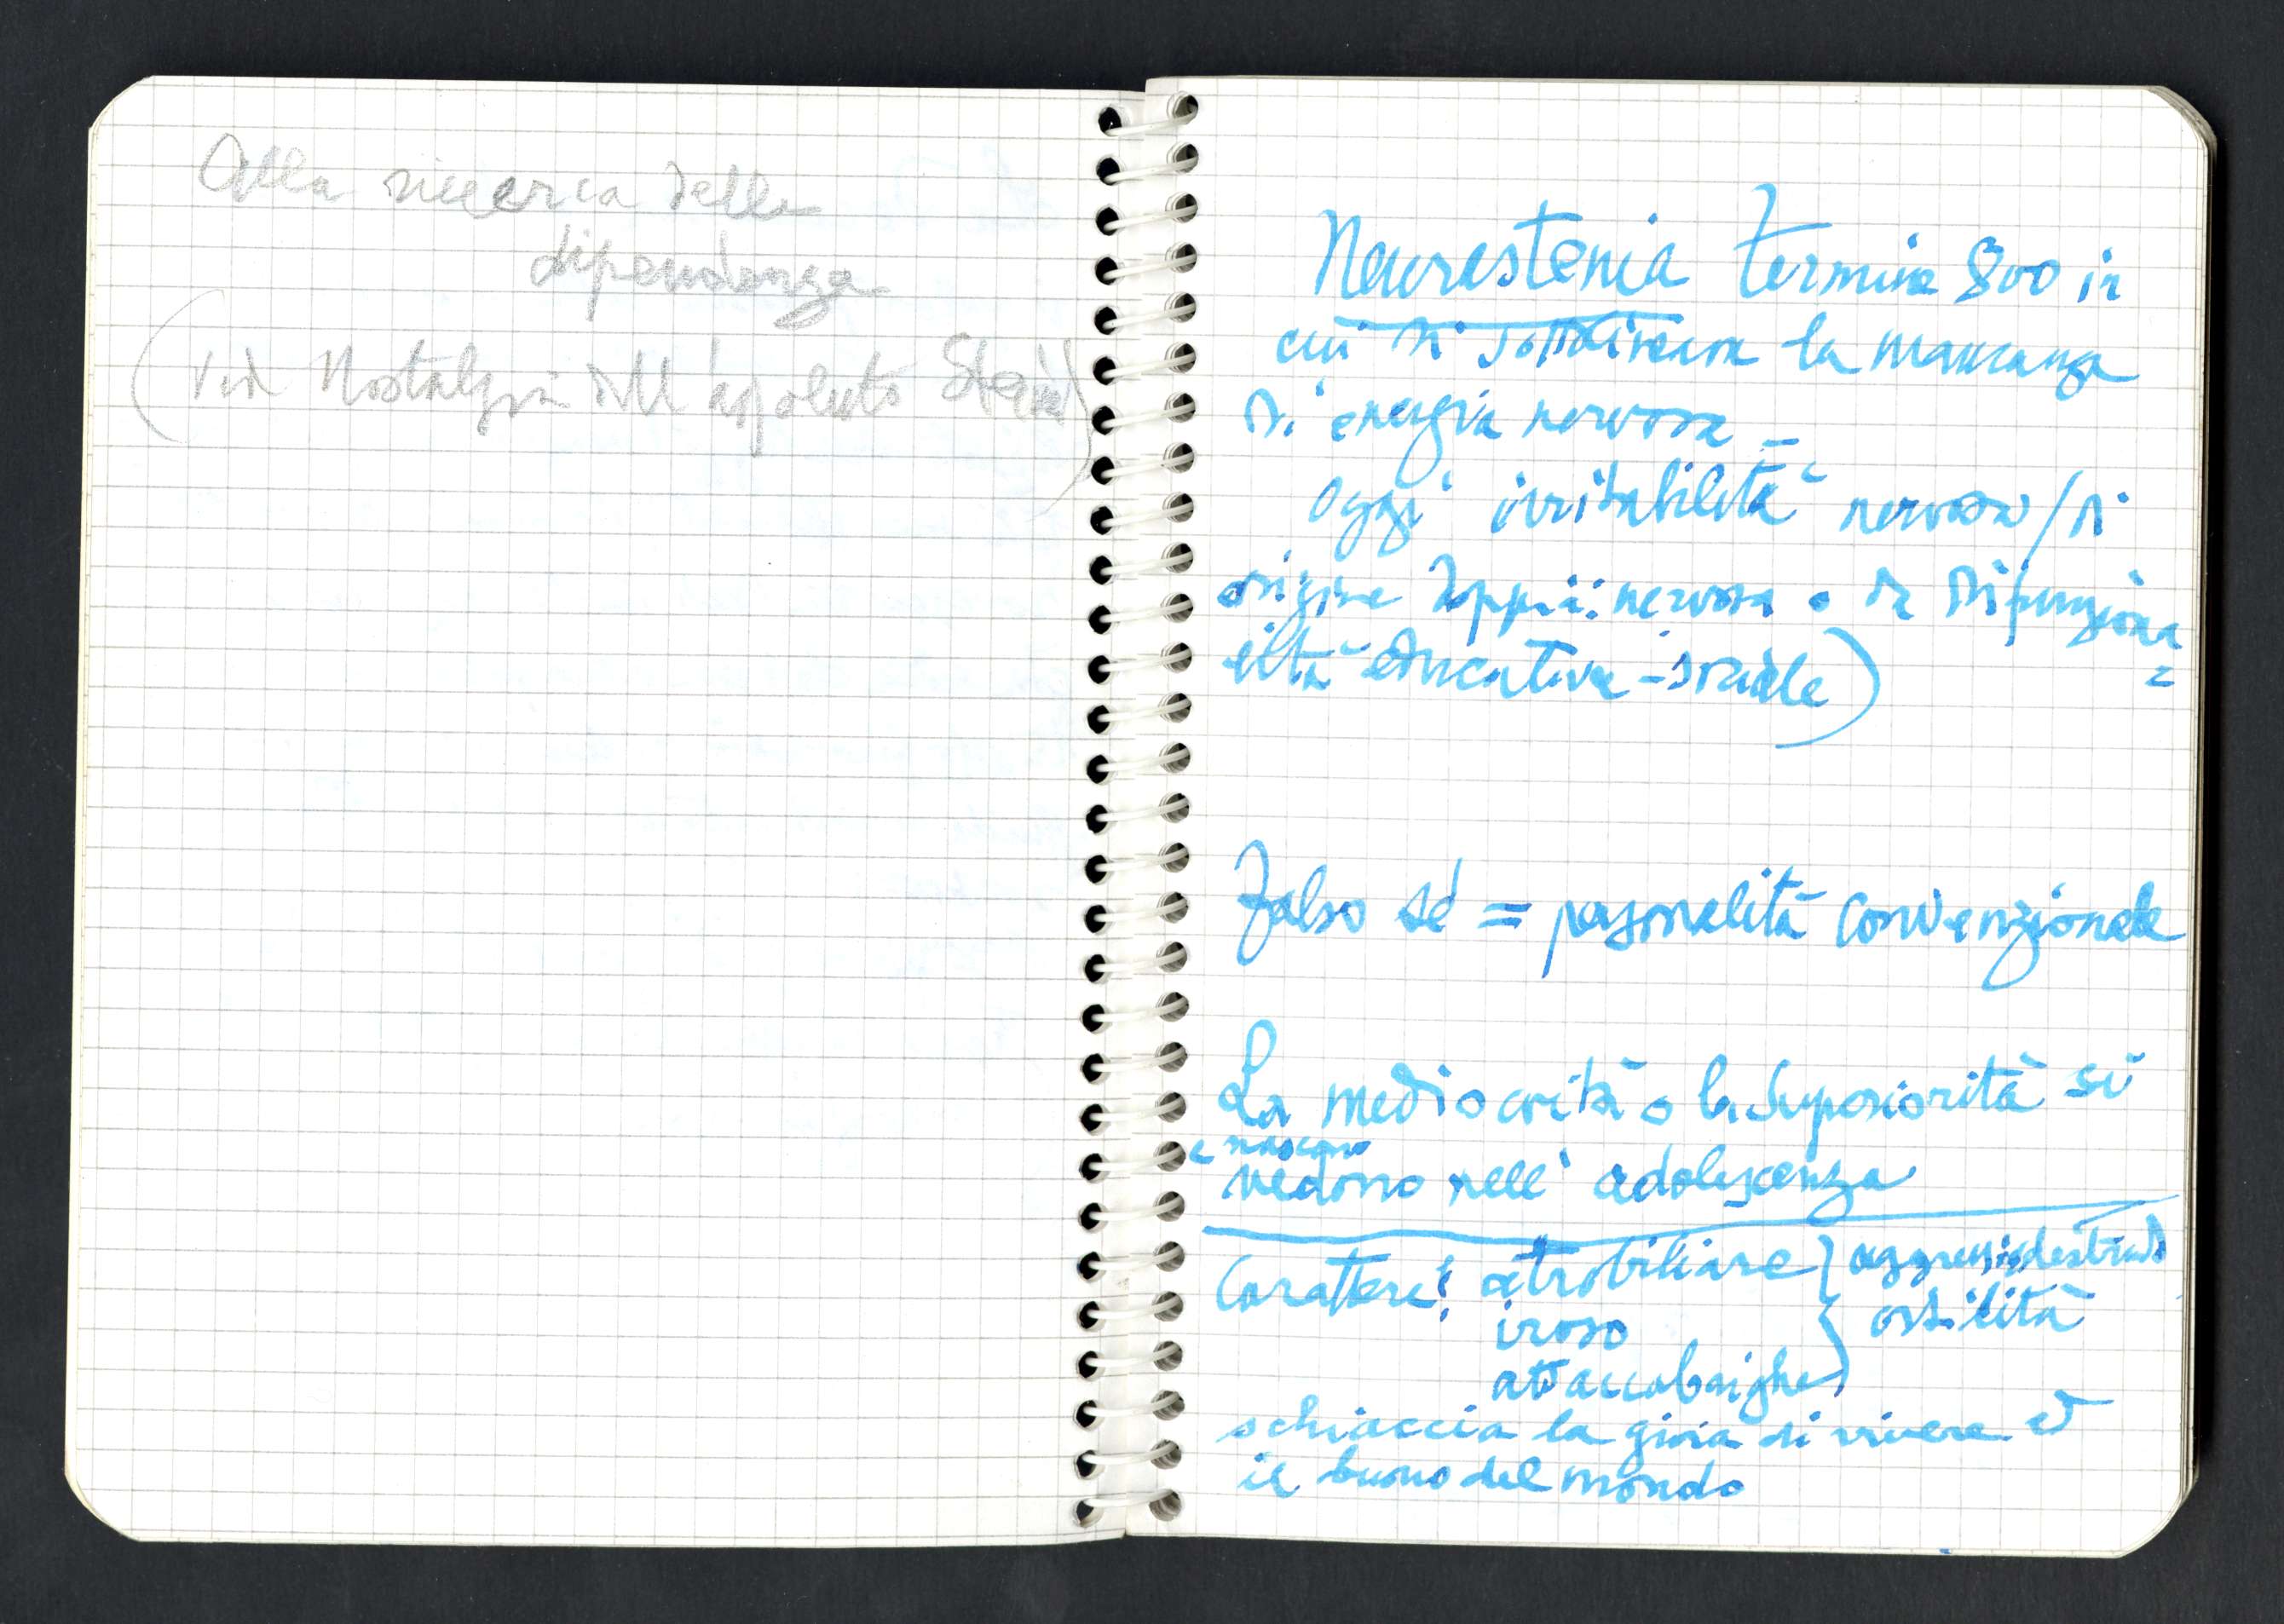 Alla ricerca della
dipendenza
(Ved Nostalgia dell'assoluto Stein)
Neurastenia termine 800 in
cui si sottolineava la mancanza
di energia nervosa _
oggi irritabilità nervosa / di
origine doppia: nervosa o da disfunziona
lità educativa - sociale)
Falso sé = personalità convenzionale
La mediocrità o la superiorità si
e nascono
vedono nell'adolescenza
Carattere: atrobiliare } aggressività
iroso } ostilità
attaccabrighe
schiaccia la gioia di vivere ed
il buono del mondo